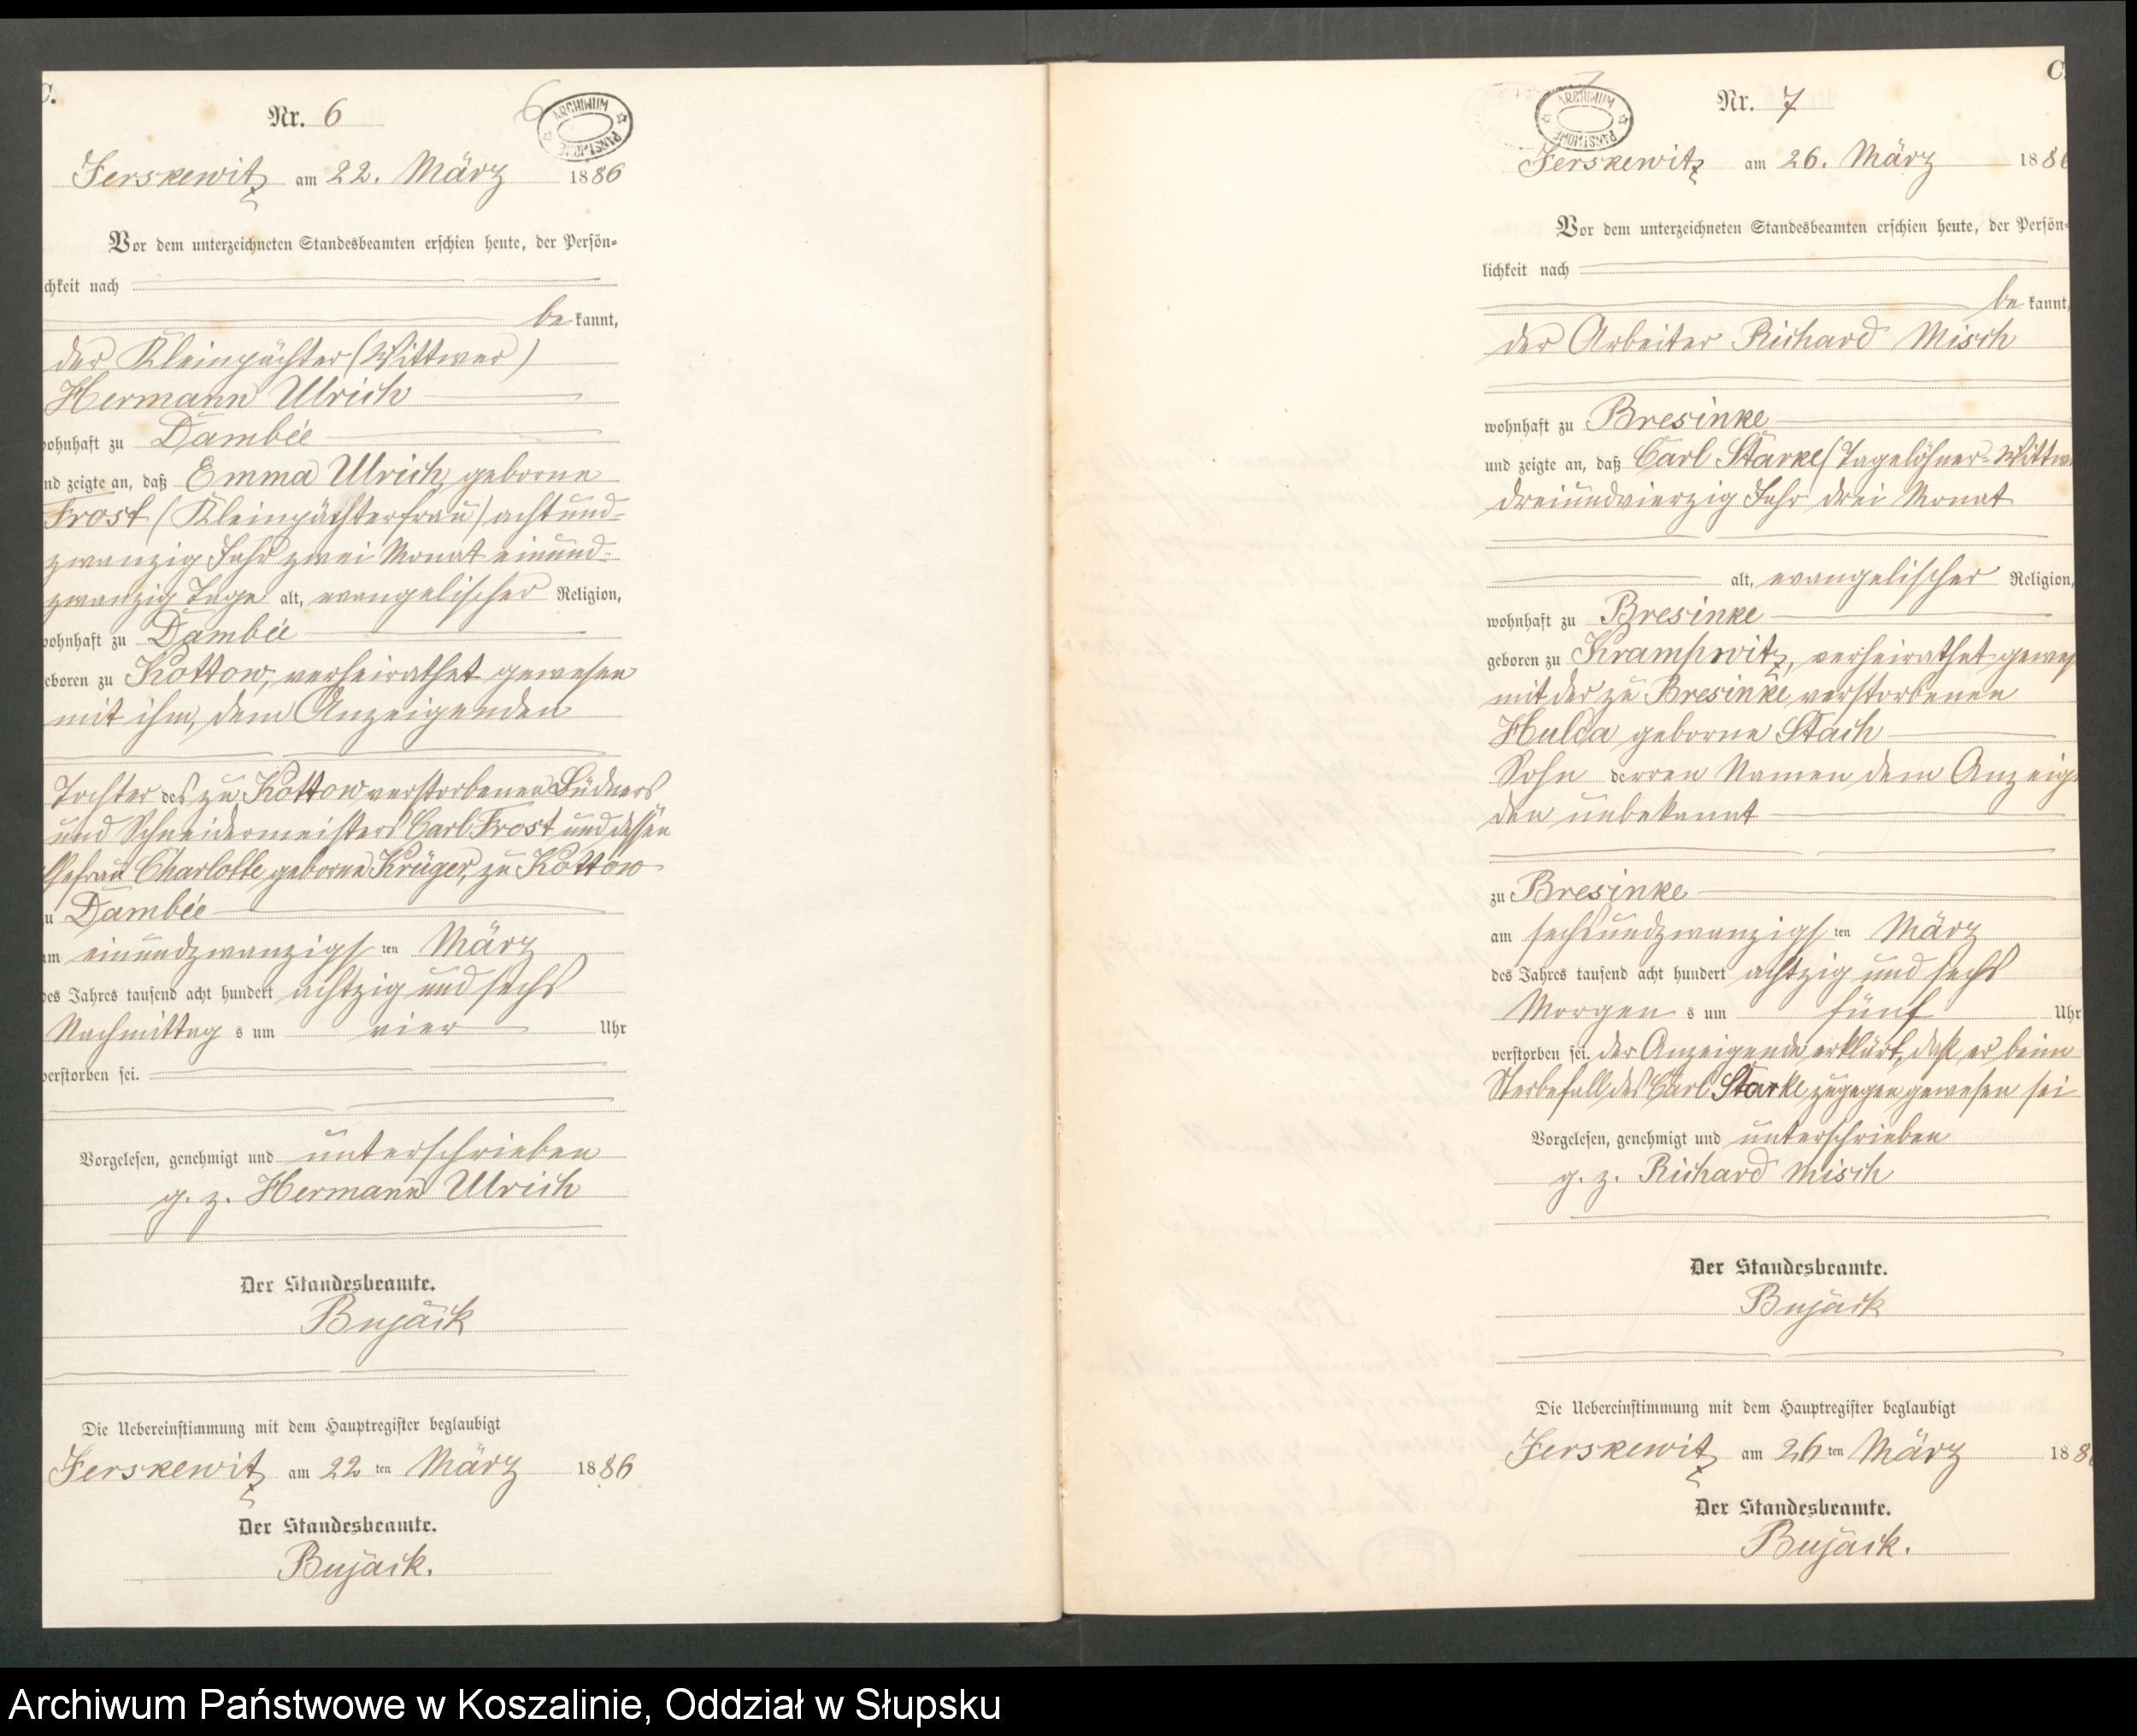 C.
Nr. 6
6
ARCHIWUM PAŃSTWOWE
Jerskewitz am 22. März 1886
Vor dem unterzeichneten Standesbeamten erschien heute, der Persön-
chkeit nach
be kannt,
der Kleinpächter (Wittwer)
Hermann Ulrich
wohnhaft zu Dambee
nd zeigte an, daß Emma Ulrich, geborne
Frost (Kleinpächterfrau) achtund-
zwanzig Jahr zwei Monat einund-
zwanzig Tage alt, evangelischer Religion,
wohnhaft zu Dambee
eboren zu Kottow, verheirathet gewesen
mit ihm, dem Anzeigenden
Tochter des zu Kottow verstorbenen Büdners
und Schneidermeisters Carl Frost und dessen
Ehefrau Charlotte geborne Krüger, zu Kottow
u Dambee
am einundzwanzigs ten März
des Jahres tausend acht hundert achtzig und sechs
Nachmittag s um vier Uhr
verstorben sei.
Vorgelesen, genehmigt und unterschrieben
g. z. Hermann Ulrich
Der Standesbeamte.
Bujack
Die Uebereinstimmung mit dem Hauptregister beglaubigt
Jerskewitz am 22 ten März 1886
Der Standesbeamte.
Bujack.
C
Nr. 7
7
ARCHIWUM PAŃSTWOWE
Jerskewitz am 26. März 188
Vor dem unterzeichneten Standesbeamten erschien heute, der Persön-
lichkeit nach
be kannt,
der Arbeiter Richard Misch
wohnhaft zu Bresinke
und zeigte an, daß Carl Starke (Tagelöhner-Wittw
dreiundvierzig Jahr drei Monat
alt, evangelischer Religion,
wohnhaft zu Bresinke
geboren zu Krampwitz, verheirathet gewes
mit der zu Bresinke verstorbenen
Hulda geborne Stach
Sohn derren Namen dem Anzeig
den unbekannt
zu Bresinke
am sechsundzwanzigs ten März
des Jahres tausend acht hundert achtzig und sechs
Morgen s um fünf Uhr
verstorben sei. der Anzeigende erklärt, daß er beim
Sterbefall des Carl Starke zugegen gewesen sei
Vorgelesen, genehmigt und unterschrieben
g. z. Richard Misch
Der Standesbeamte.
Bujack
Die Uebereinstimmung mit dem Hauptregister beglaubigt
Jerskewitz am 26 ten März 188
Der Standesbeamte.
Bujack.
Archiwum Państwowe w Koszalinie, Oddział w Słupsku